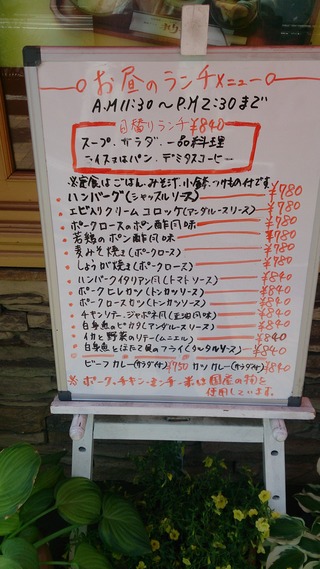 お昼のランチメニュー
A.M 11:30 〜 P.M 2:30まで
日替りランチ ¥840
スープ・サラダ・一品料理
ライス又はパン・デミタスコーヒー
※定食はごはん・みそ汁・小鉢・つけもの付です。
ハンバーグ(シャッスルソース) ¥780
エビ入りクリームコロッケ(アンダルースソース) ¥780
ポークロースのポン酢風味 ¥780
若鶏のポン酢風味 ¥780
麦みそ焼き(ポークロース) ¥780
しょうが焼き(ポークロース) ¥780
ハンバーグイタリアン風(トマトソース) ¥840
ポークヒレカツ(トンカツソース) ¥840
ポークロースカツ(トンカツソース) ¥840
チキンソテー・ジャポネ風(正油風味) ¥840
白身魚のピカタ(アンダルースソース) ¥840
イカと野菜のソテー(ムニエル) ¥840
白身魚とほたて貝のフライ(タルタルソース) ¥840
ビーフカレー(サラダ付) ¥950 カツカレー(サラダ付) ¥840
※ポーク、チキン・ミンチ・米は国産の物を
使用しています。